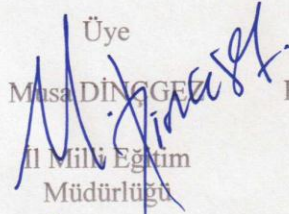 Üye
Musa DİNÇGEZ
İl Milli Eğitim
Müdürlüğü